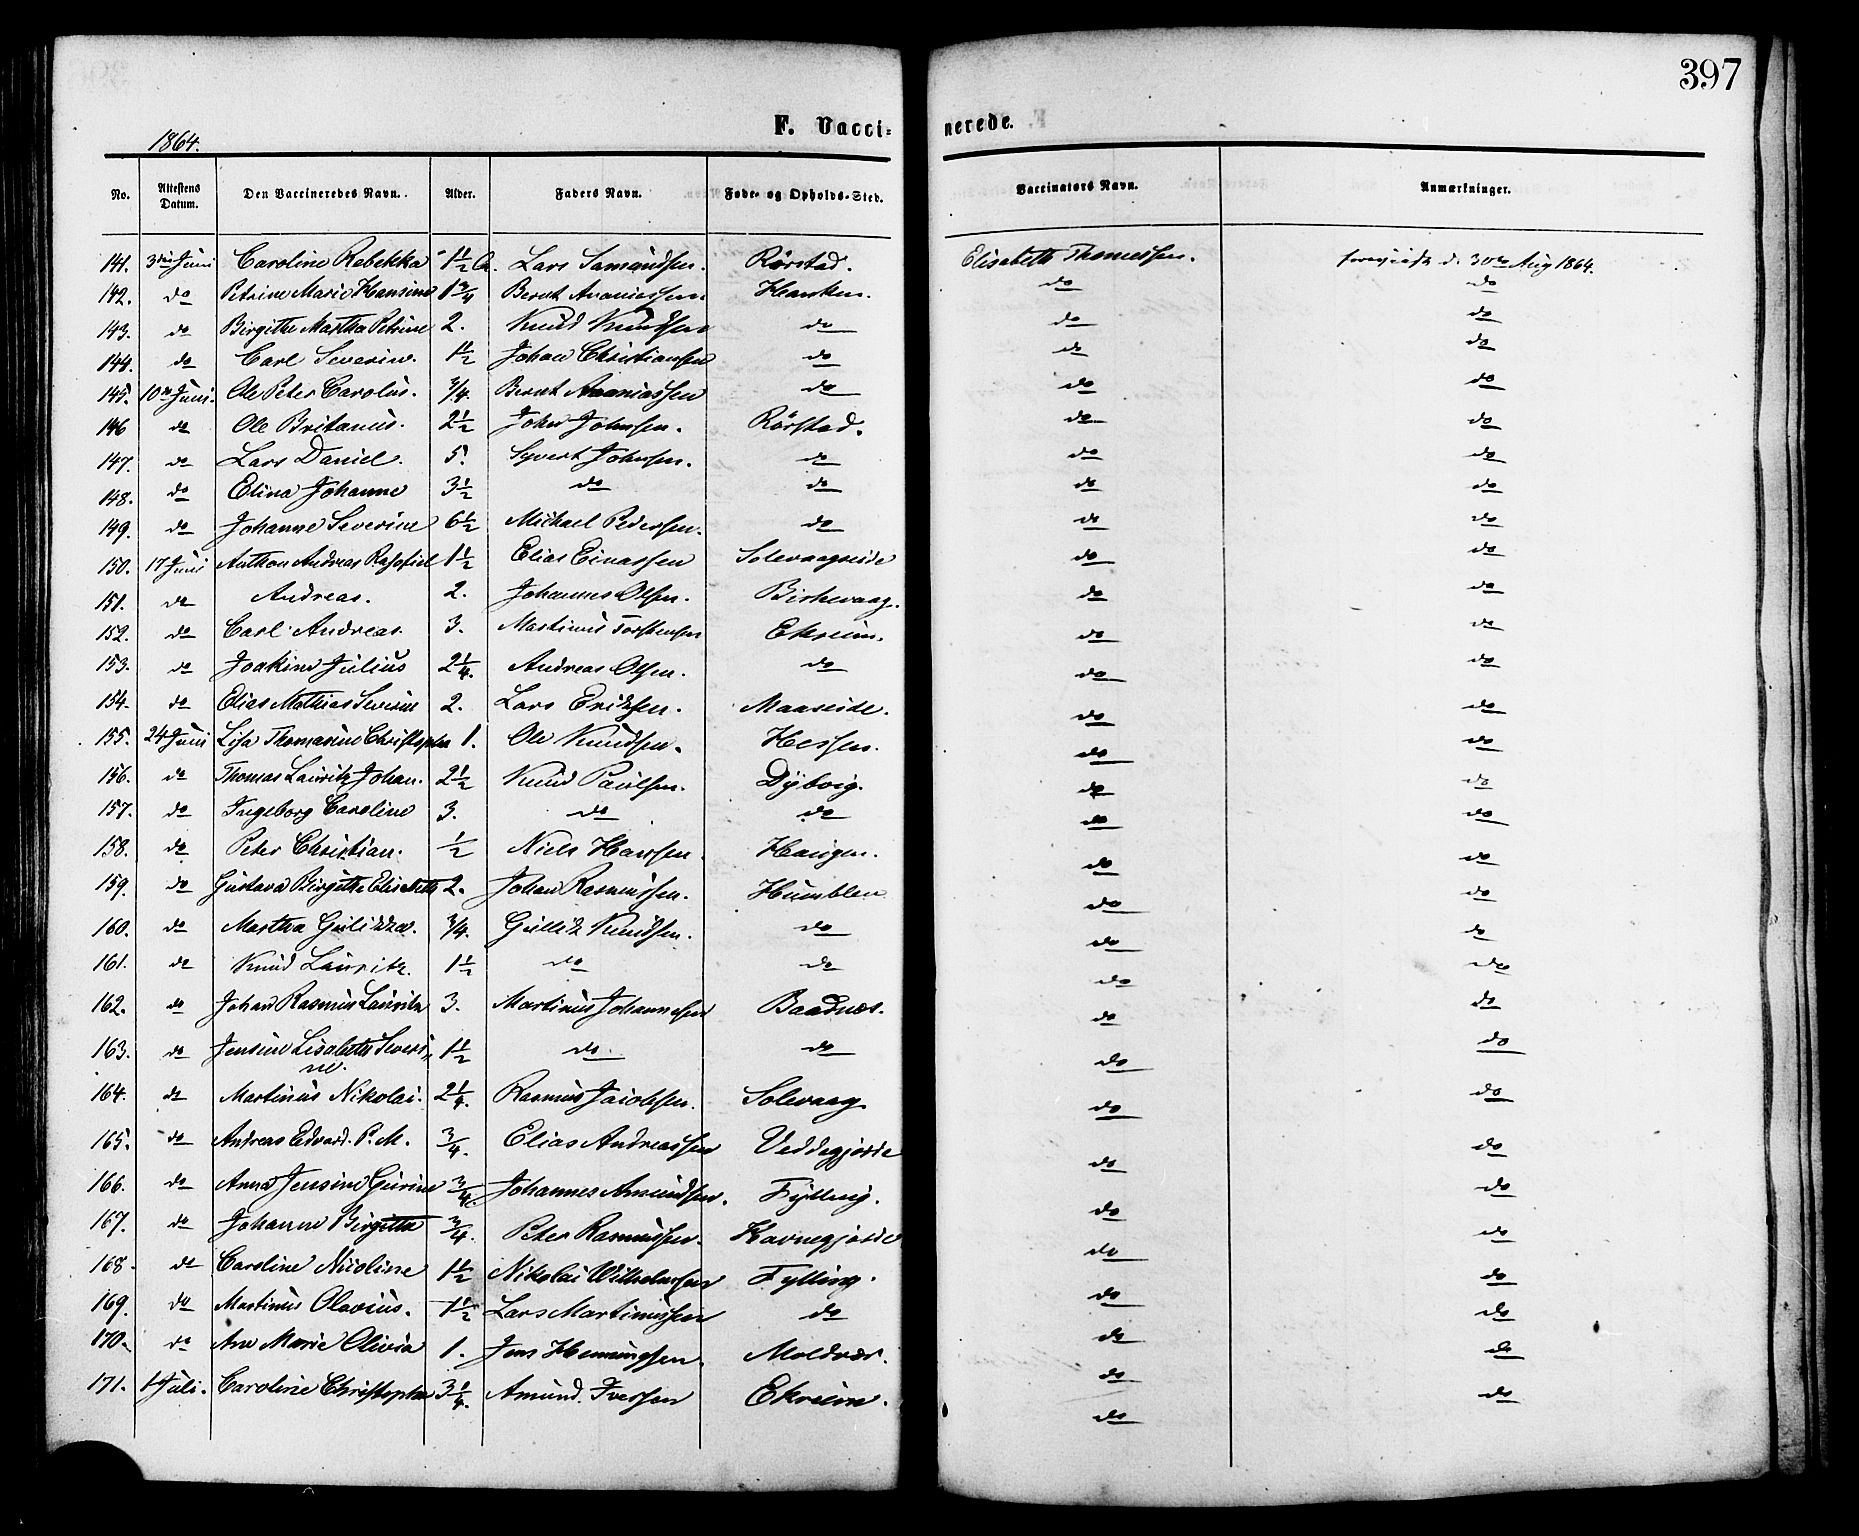 397
F. Vacci- nerede.
1864.
No. | Attestens Datum. | Den Vaccineredes Navn. | Alder. | Faders Navn. | Føde- og Opholds-Sted. | Vaccinators Navn. | Anmærkninger.
141. | 3die Juni | Caroline Rebekka | 1½ | Lars Samundsen. | Rørstad. | Elisabeth Thomessen. | d. 30te Aug 1864.
142. | do | Petrine Marie Hansine | 1¾ | Bernt Ananiassen | Hanken. | do | do
143. | do | Birgithe Martha Petrine | 2. | Knud Knudsen | do | do | do
144. | do | Carl Severin. | 1½ | Johan Christiansen | do | do | do
145. | 10de Juni. | Ole Peter Carolus. | ¾. | Bernt Ananiassen | do | do | do
146 | do | Ole Britanus. | 2½ | John Johnsen. | Rörstad. | do | do
147. | do | Lars Daniel. | 5. | Syvert Johnsen. | do | do | do
148. | do | Elina Johanne | 3½ | do | do | do | do
149. | do | Johanne Severine | 6½ | Michael Pedersen. | do | do | do
150. | 17 Juni | Anthon Andreas | 1½ | Elias Einassen | Solevaagseide | do | do
151. | do | Andreas. | 2. | Johannes Olsen. | Birkevaag. | do | do
152. | do | Carl Andreas. | 3. | Martinus Torstensen | Ekreim. | do | do
153. | do | Joakim Julius | 2¼. | Andreas Olsen. | do | do | do
154. | do | Elias Mathias Severin | 2. | Lars Eriksen. | Maaseide. | do | do
155. | 24 Juni | Lisa Thomasine | 1. | Ole Knudsen. | Hessen. | do | do
156. | do | Thomas Lauritz Johan. | 2½ | Knud Paulsen. | Dybvig. | do | do
157. | do | Ingeborg Caroline | 3. | do | do | do | do
158. | do | Peter Christian. | ½ | Niels Hansen. | Haugen. | do | do
159. | do | Gustava Birgithe Elisabeth | 2. | Johan Rasmussen. | Humblen | do | do
160. | do | Martha Gulikka. | ¾. | Gullik Knudsen. | do | do | do
161. | do | Knud Lauritz. | 1½ | do | do | do | do
162. | do | Johan Rasmus Lauritz | 3. | Martinus Johannesen | Baadnæs. | do | do
163. | do | Jensine Lisabeth Severi-
ne. | 1½ | do. | do | do | do
164. | do | Martinus Nikolai. | 2¼. | Rasmus Jacobsen. | Solevaag | do | do
165. | do | Andreas Edvard. P. M. | ¾. | Elias Andreassen | Veddegjerde | do | do
166. | do | Anna Jensine Gurine | ¾. | Johannes Amundsen. | | do | do
167. | do | Johanne Birgitta | ¾. | Peter Rasmussen. | Kavnegjerde | do | do
168. | do | Caroline Nicoline | 1½ | Nikolai Wilhelmsen | Fylling. | do | do
169. | do | Martinus Olavius. | 1½ | Lars Martinussen | do | do | do
170. | do | Ane Marie Olivia | 1. | Jens Hemingsen. | Moldvær. | do | do
171. | 1 Juli. | Caroline | 3¼. | Amund. Iversen | Ekreim. | do | do
do